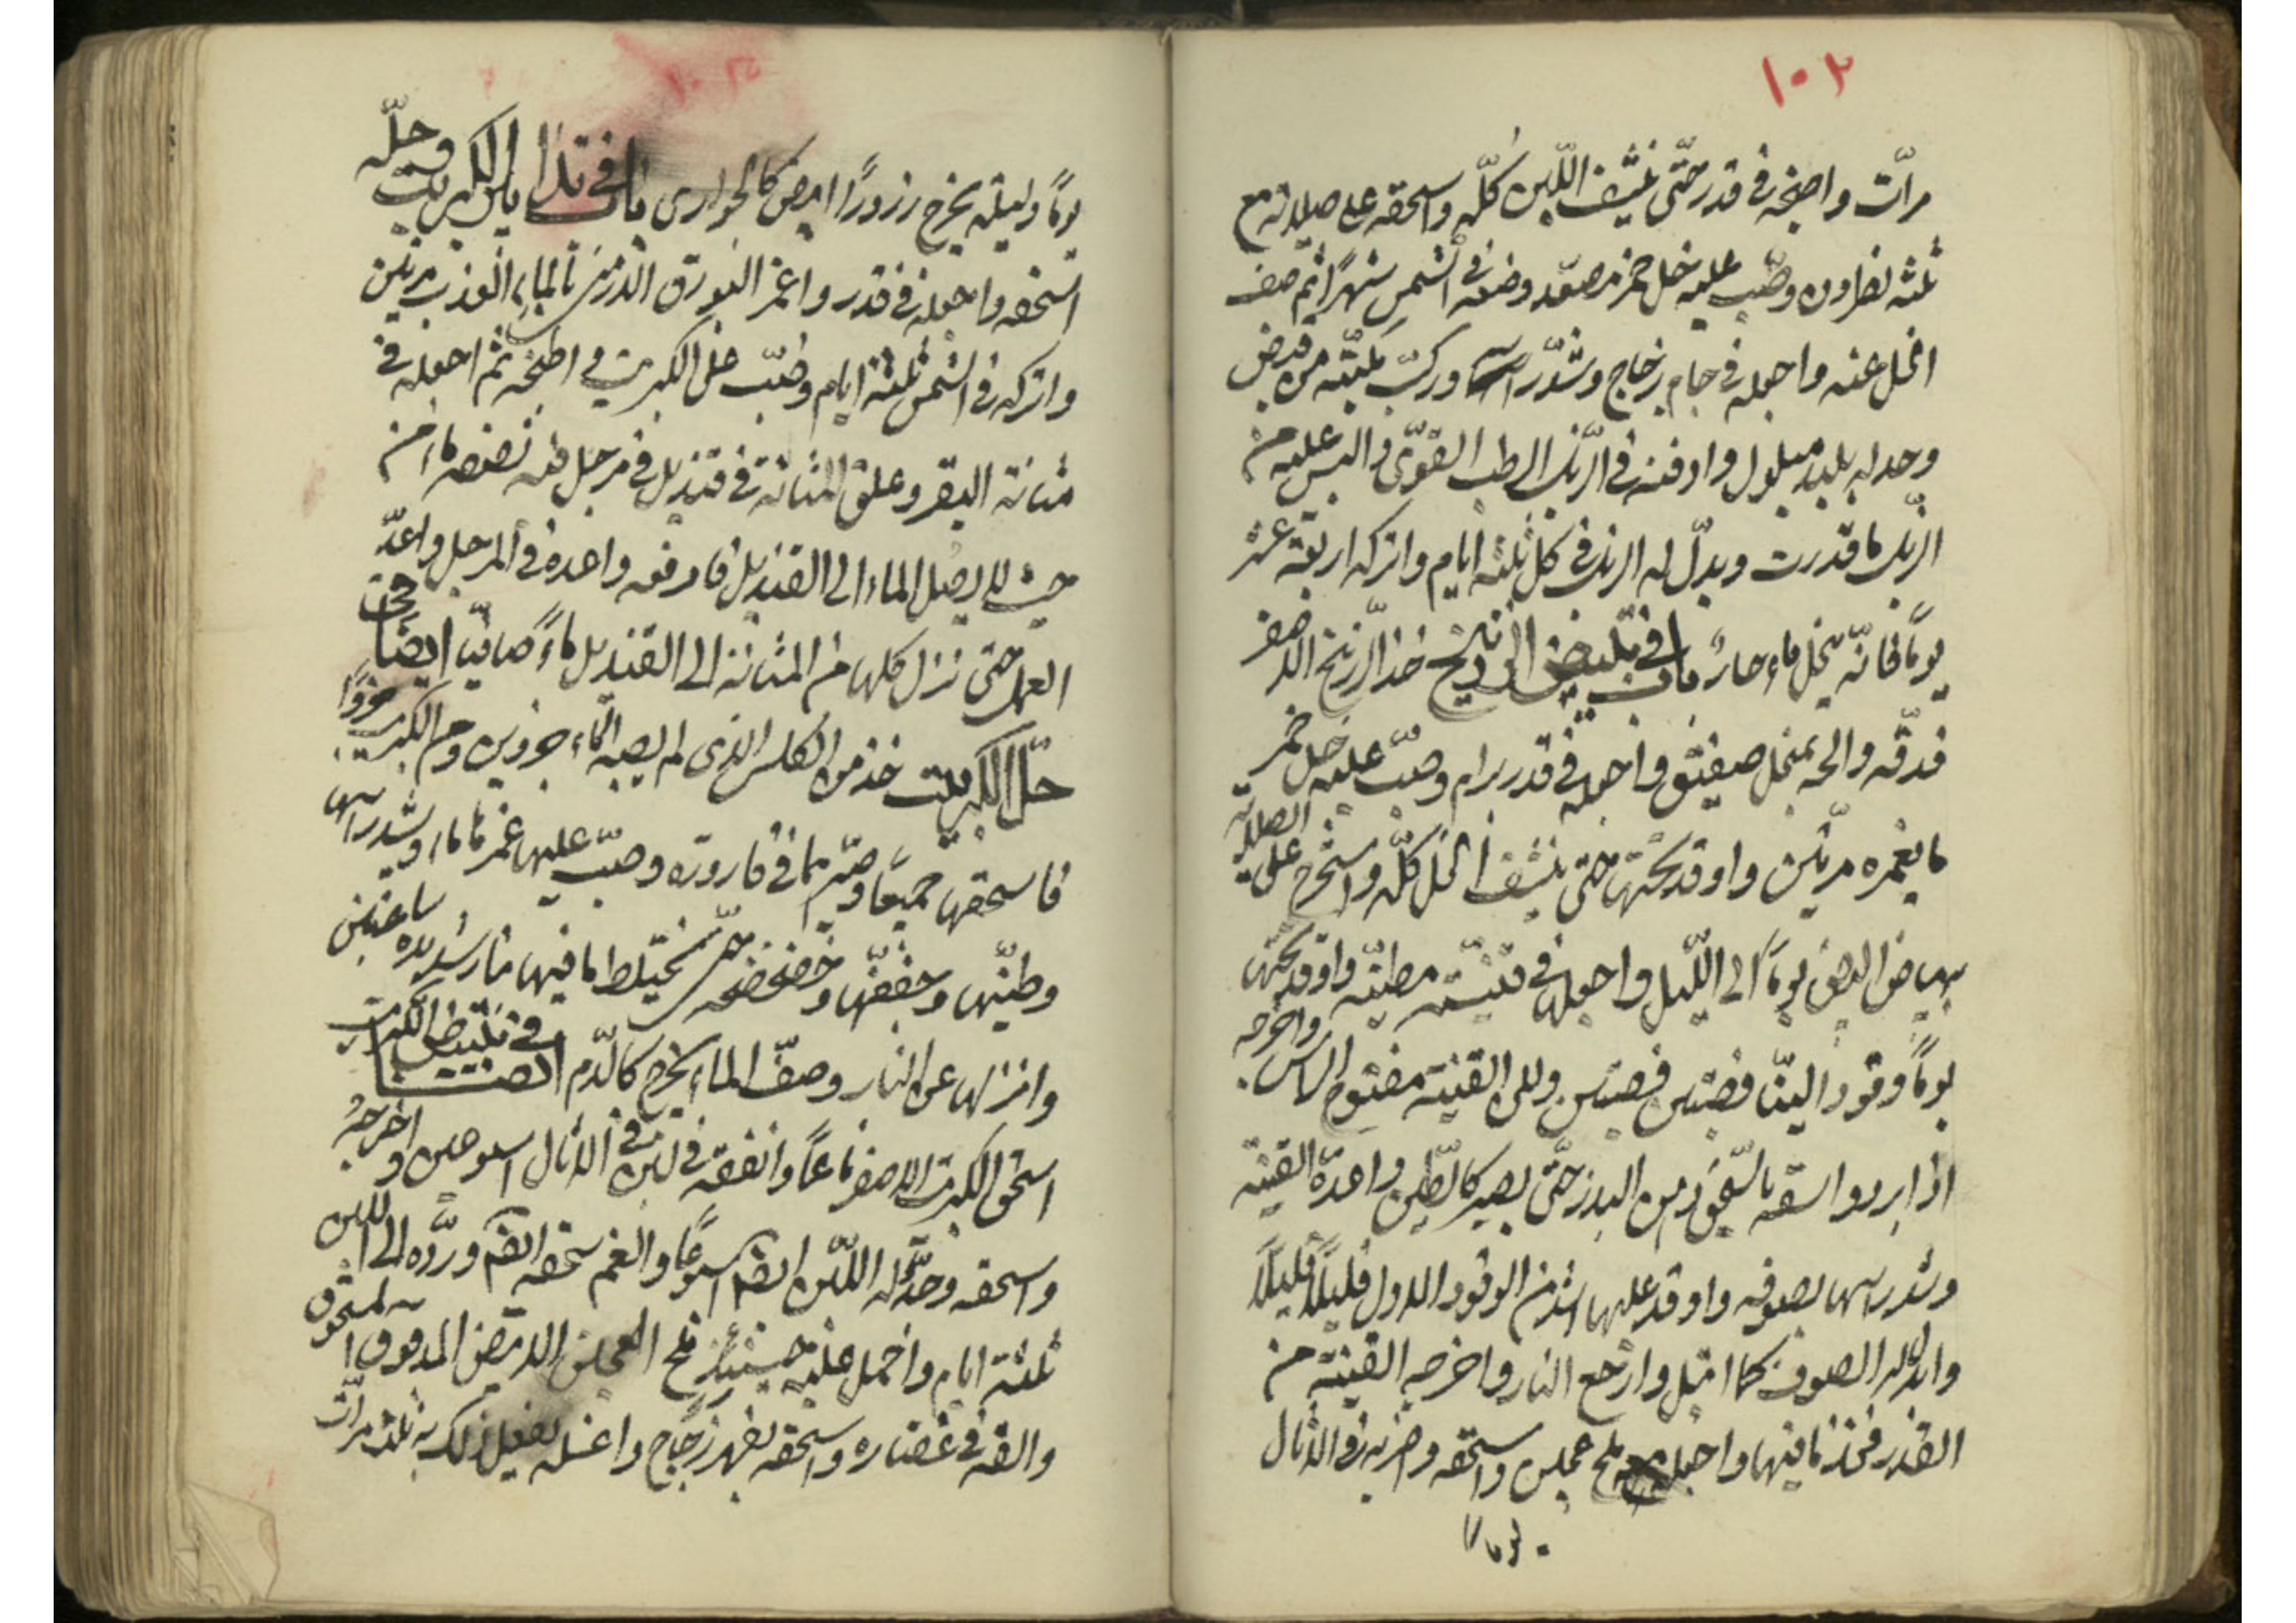 ١٠٢
مرات واطبخه في قدر حتى ينشف اللبن كله واسحقه على صلاية مع
ثلثه نطرون وصب عليه خل خمر مصعد وضعه في الشمس شهرا ثم صف
الخل عنه واجعله في جام زجاج وشد راسه وركب
وحد له بلبد مبلول وادفنه في الزبل الرطب القوي والبس عليه من
الزبل ما قدرت وبدل له الزبل في كل ثلثة ايام واتركه اربعة عشر
يوما فانه ينحل ماء حار باب في تبييض الزرنيخ خذ الزرنيخ الاصفر
فدقه وانخله بمنخل صفيق واجعله في قدر برام وصب عليه خل خمر
ما يغمره مرتين واوقد تحتها حتى ينشف الخل كله واستخرج على الصلاية
ببياض البيض يوما الى الليل واجعلها في قنينة مطينة واوقد تحتها
يوما وقود اللبن قصبتين قصبتين ولكن القنينة مفتوح الراس واخرجه
اذا برد واسقه بالسحق دهن البزر حتى يصير كالطين واعده القنينة
وشد راسها بصوفه واوقد عليها اشد من الوقود الاول قليلا قليلا
وابدل له الصوف كما ابتل وارفع النار واخرج القنينة من
القدر فخذ ما فيها واجعل معه ملح عجين واسحقه واضربه في الاثال
يوما
١٠٣
يوما وليلة يخرج زرورا ابيض كالحوارى باب في تدابير الكبريت وحله
اسحقه واجعله في قدر واغمر البورق الارمني بالماء العذب مرتين
واتركه في الشمس ثلثة ايام وصب على الكبريت واطبخه ثم اجعله في
مثانة البقر وعلق المثانة في قنديل في مرجل فيه نصفه ماء من
حيث لا يصل الماء الى القنديل فارفعه واعده في المرجل واعد
العمل حتى نزل كلها من المثانة الى القنديل ماء صافيا ايضا في
حل الكبريت خذ من الكلس الذي لم يصبه الماء جزوين ومن الكبريت جزوا
فاسحقها جميعا وصيرها في قارورة وصب عليها غمرها ماء وشد راسها
وطينها وجففها وخضخضه حتى يختلط ما فيها نار شديدة ساعتين
وانزلها عن النار وصف الماء يخرج كالدم ايضا في تبييض الكبريت
اسحق الكبريت الاصفر ناعما وانقعه في لبن في الاثال اسبوعين واخرجه
واسحقه وجدد له اللبن ايضا اسبوعا وانعم سحقه ايضا ورده الى اللبن
ثلثة ايام واحمل عليه حينئذ ملح العجين الابيض المدقوق المسحوق
والقه في غضارة واسحقه بفهر زجاج واغسله يفعل ذلك به ثلث مرات